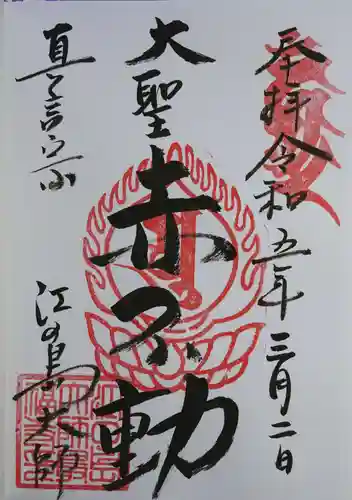 奉拝 令和五年三月二日
大聖
赤不動
真言宗
江の島大師